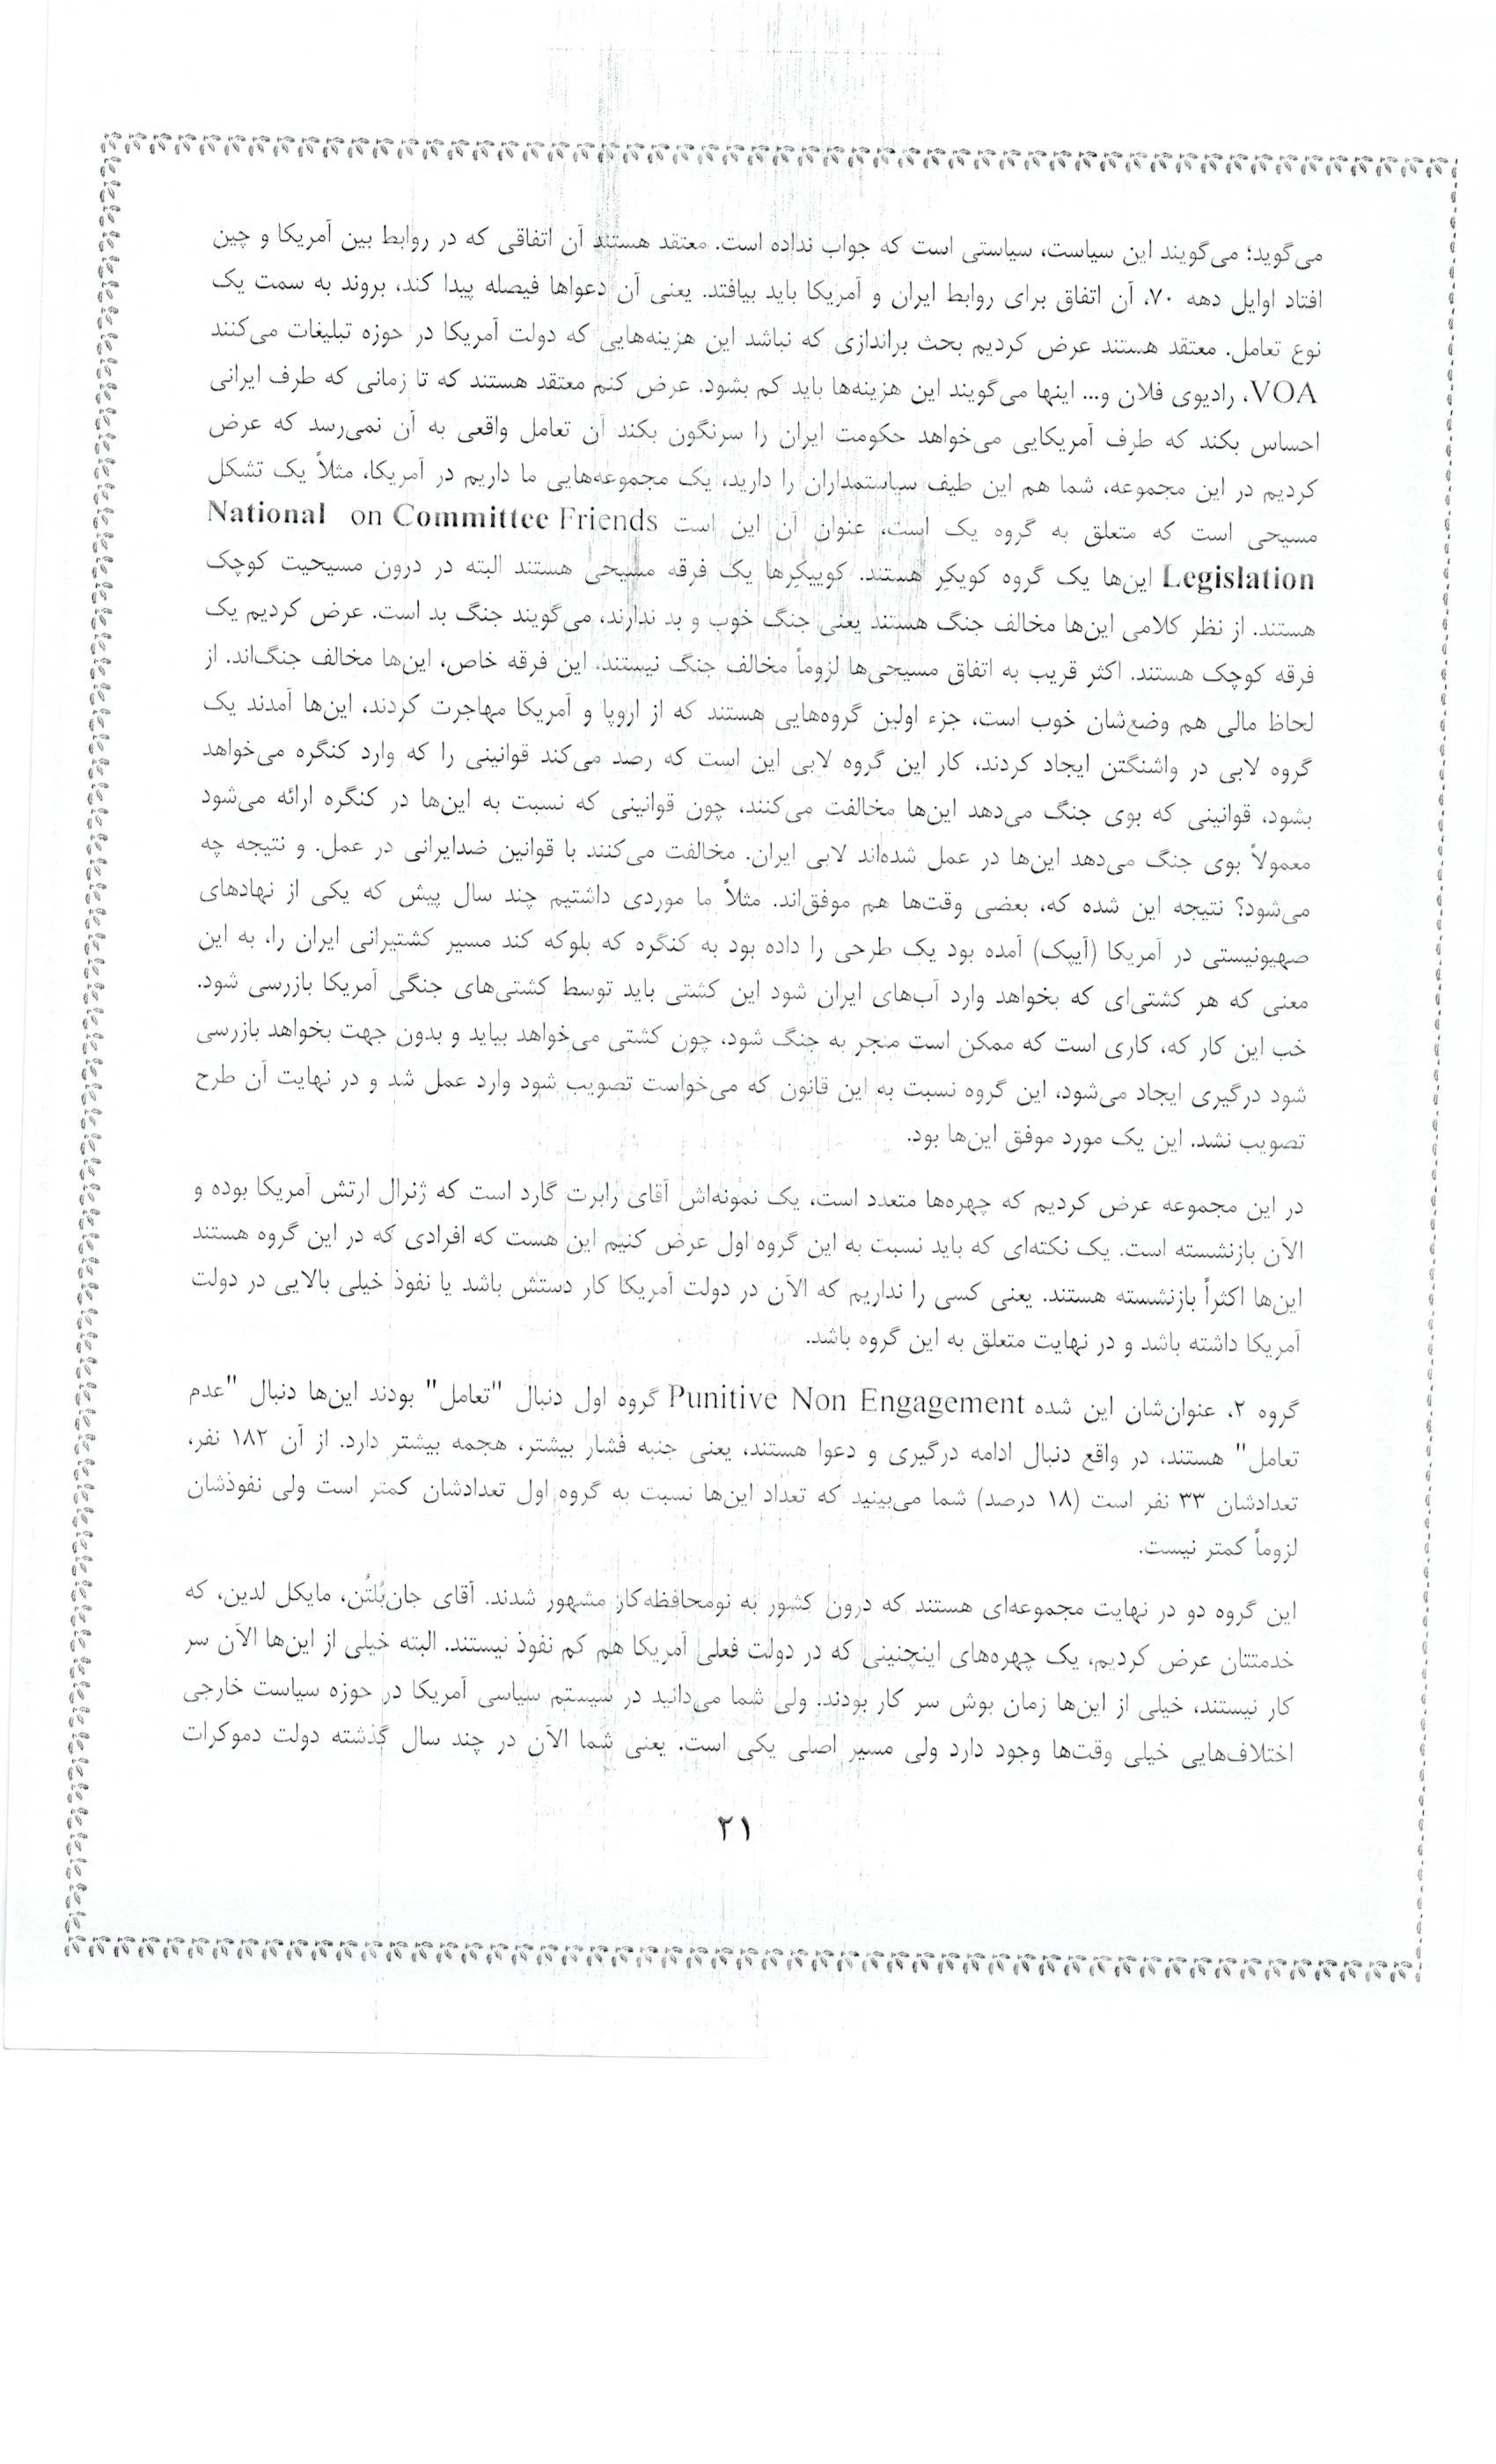 می‌گوید؛ می‌گویند این سیاست، سیاستی است که جواب نداده است. معتقد هستند آن اتفاقی که در روابط بین آمریکا و چین
افتاد اوایل دهه ۷۰، آن اتفاق برای روابط ایران و آمریکا باید بیافتد. یعنی آن دعواها فیصله پیدا کند، بروند به سمت یک
نوع تعامل. معتقد هستند عرض کردیم بحث براندازی که نباشد این هزینه‌هایی که دولت آمریکا در حوزه تبلیغات می‌کنند
VOA، رادیوی فلان و... اینها می‌گویند این هزینه‌ها باید کم بشود. عرض کنم معتقد هستند که تا زمانی که طرف ایرانی
احساس بکند که طرف آمریکایی می‌خواهد حکومت ایران را سرنگون بکند آن تعامل واقعی به آن نمی‌رسد که عرض
کردیم در این مجموعه، شما هم این طیف سیاستمداران را دارید، یک مجموعه‌هایی ما داریم در آمریکا، مثلاً یک تشکل
مسیحی است که متعلق به گروه یک است، عنوان آن این است National on Committee Friends
Legislation این‌ها یک گروه کویکِر هستند. کوییکِرها یک فرقه مسیحی هستند البته در درون مسیحیت کوچک
هستند. از نظر کلامی این‌ها مخالف جنگ هستند یعنی جنگ خوب و بد ندارند، می‌گویند جنگ بد است. عرض کردیم یک
فرقه کوچک هستند. اکثر قریب به اتفاق مسیحی‌ها لزوماً مخالف جنگ نیستند. این فرقه خاص، این‌ها مخالف جنگ‌اند. از
لحاظ مالی هم وضع‌شان خوب است، جزء اولین گروه‌هایی هستند که از اروپا و آمریکا مهاجرت کردند، این‌ها آمدند یک
گروه لابی در واشنگتن ایجاد کردند، کار این گروه لابی این است که رصد می‌کند قوانینی را که وارد کنگره می‌خواهد
بشود، قوانینی که بوی جنگ می‌دهد این‌ها مخالفت می‌کنند، چون قوانینی که نسبت به این‌ها در کنگره ارائه می‌شود
معمولاً بوی جنگ می‌دهد این‌ها در عمل شده‌اند لابی ایران. مخالفت می‌کنند با قوانین ضدایرانی در عمل. و نتیجه چه
می‌شود؟ نتیجه این شده که، بعضی وقت‌ها هم موفق‌اند. مثلاً ما موردی داشتیم چند سال پیش که یکی از نهادهای
صهیونیستی در آمریکا (آیپک) آمده بود یک طرحی را داده بود به کنگره که بلوکه کند مسیر کشتیرانی ایران را، به این
معنی که هر کشتی‌ای که بخواهد وارد آب‌های ایران شود این کشتی باید توسط کشتی‌های جنگی آمریکا بازرسی شود.
خب این کار که، کاری است که ممکن است منجر به جنگ شود، چون کشتی می‌خواهد بیاید و بدون جهت بخواهد بازرسی
شود درگیری ایجاد می‌شود، این گروه نسبت به این قانون که می‌خواست تصویب شود وارد عمل شد و در نهایت آن طرح
تصویب نشد. این یک مورد موفق این‌ها بود.
در این مجموعه عرض کردیم که چهره‌ها متعدد است، یک نمونه‌اش آقای رابرت گارد است که ژنرال ارتش آمریکا بوده و
الآن بازنشسته است. یک نکته‌ای که باید نسبت به این گروه اول عرض کنیم این هست که افرادی که در این گروه هستند
این‌ها اکثراً بازنشسته هستند. یعنی کسی را نداریم که الآن در دولت آمریکا کار دستش باشد یا نفوذ خیلی بالایی در دولت
آمریکا داشته باشد و در نهایت متعلق به این گروه باشد.
گروه ۲، عنوان‌شان این شده Punitive Non Engagement گروه اول دنبال "تعامل" بودند این‌ها دنبال "عدم
تعامل" هستند، در واقع دنبال ادامه درگیری و دعوا هستند، یعنی جنبه فشار بیشتر، هجمه بیشتر دارد. از آن ۱۸۲ نفر،
تعدادشان ۳۳ نفر است (۱۸ درصد) شما می‌بینید که تعداد این‌ها نسبت به گروه اول تعدادشان کمتر است ولی نفوذشان
لزوماً کمتر نیست.
این گروه دو در نهایت مجموعه‌ای هستند که درون کشور به نومحافظه‌کار مشهور شدند. آقای جان‌بُلتُن، مایکل لدین، که
خدمتتان عرض کردیم، یک چهره‌های اینچنینی که در دولت فعلی آمریکا هم کم نفوذ نیستند. البته خیلی از این‌ها الآن سر
کار نیستند، خیلی از این‌ها زمان بوش سر کار بودند. ولی شما می‌دانید در سیستم سیاسی آمریکا در حوزه سیاست خارجی
اختلاف‌هایی خیلی وقت‌ها وجود دارد ولی مسیر اصلی یکی است. یعنی شما الآن در چند سال گذشته دولت دموکرات
۲۱